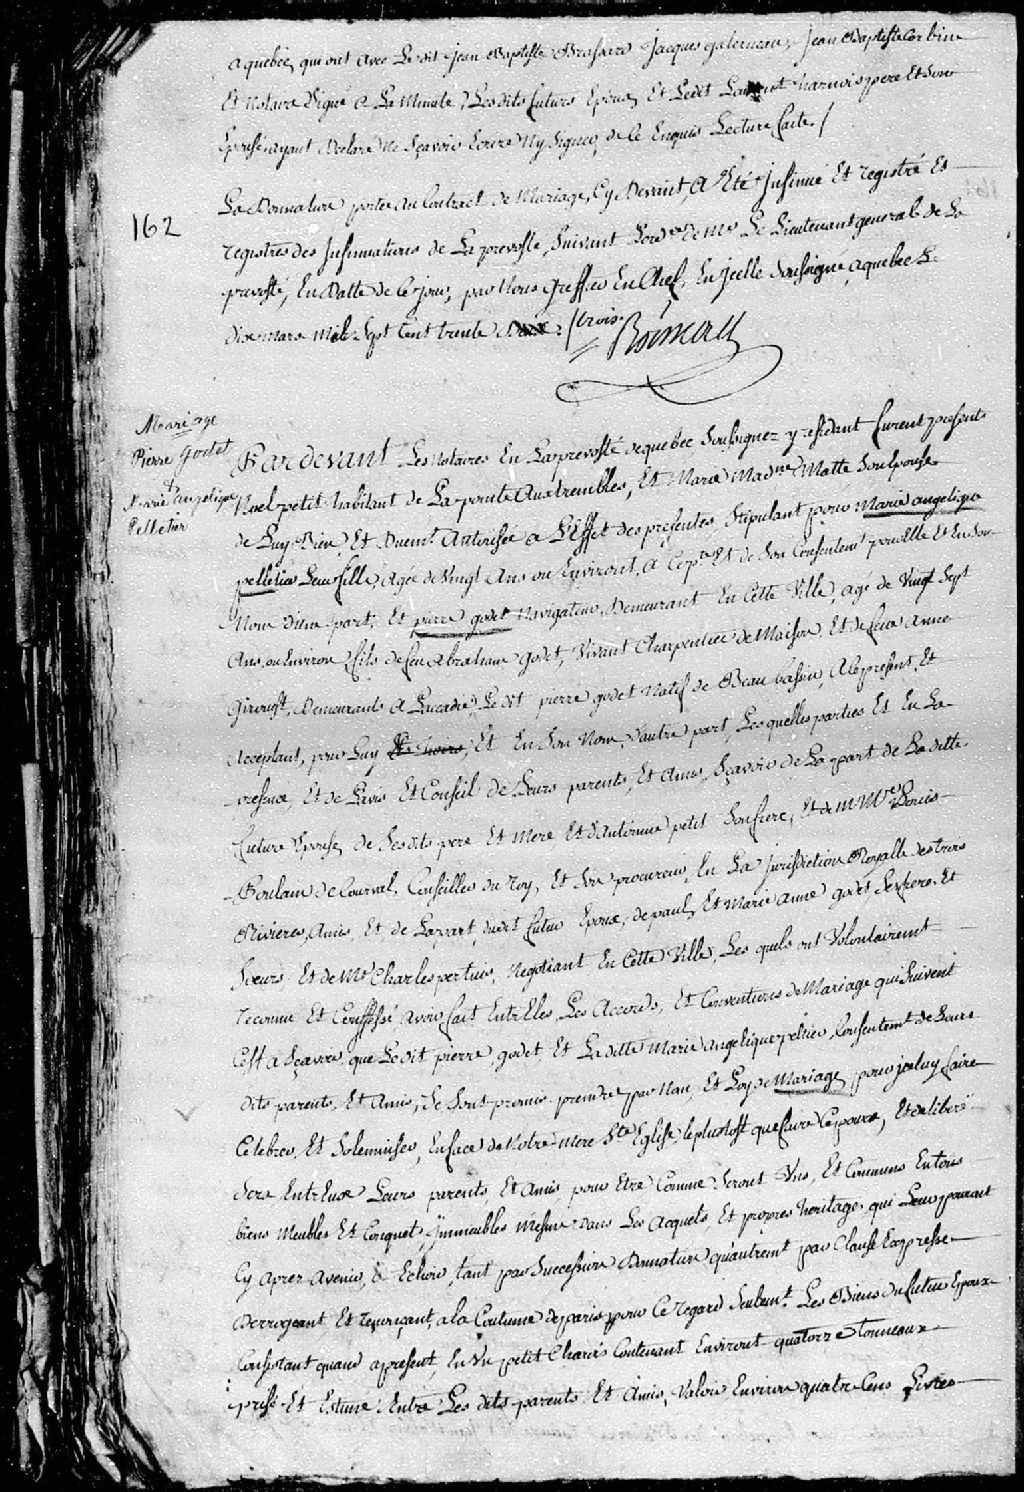 a quebec, qui ont avec Le dit jean Baptiste Brassard jacques galerneau, jean Baptiste Corbin
Et notaire Signé a La Minute, Lesdits futurs Epoux, Et Ledit Laurent harnois pere Et Son
Epouse ayant Declaré ne Sçavoir Ecrire Ny Signer, de Ce Enquis Lecture faite /
162
La Donnation portée au Contract de Mariage, Cy Devant, a Eté Insinué Et registré Es
registres des Insinuations de La prevosté, Suivant Lordre de Mr Le Lieutenant general de La
prevosté, En Datte de Ce jour, par Nous Greffier En Chef, En jcelle Soussigné, a quebec Le
dix mars Mil Sept Cent trente deux / trois.
Boisseau
Mariage
Pierre Godet
&
Marie angelique
Pelletier
Pardevant Les Notaires En La prevosté de quebec Soussignez y residant furent present
Noel petit habitant de La pointe Auxtrembles, Et Marie Madne Matte Son Epouse
de Luy Bien Et Duemt Autorisée a L'Effet des presentes, Stipulant pour Marie angelique
pelletier Leur fille, Agée de Vingt Ans ou Environt, a Ce pnte Et de Son Consentemt pour Elle Et En Son
Nom D'une part, Et pierre godet Navigateur, Demeurant En Cette Ville, agé de Vingt Sept
Ans, ou Environ, fils de feu Abraham Godet, Vivant Charpentier de Maison, Et de feue Anne
Demeurants a Laccadie, Le dit pierre godet Natif de Beau bassin, A Ce present, Et
Acceptant, pour Luy Et En Son Nom, D'autre part, Les quelles parties Et En La
presence, Et de Lavis Et Conseil de Leurs parents, Et Amis, Sçavoir de La part de La ditte
future Epouse, de Ses dits pere Et Mere Et d'Antoinne petit Son frere, Et de Me Louis
Poulain de Courval, Conseiller du Roy, Et Son procureur, En La jurisdiction Royalle des trois
Rivieres, Amis, Et de La part, dudit futur Epoux, de paul Et Marie Anne godet, Ses frere Et
Soeurs, Et de Mr Charles pertuis, Negotiant En Cette Ville, Les quels ont Volontairemt
reconnu Et Confessé avoir fait Entr'Elles, Les Accords, Et Conventions de Mariage qui Suivent
C'est a Sçavoir, que Le dit pierre, godet, Et La ditte Marie angelique peltier, du Consentemt de Leurs
dits parents, Et Amis, Se Sont promis prendre par Nom, Et Loy de Mariage, pour jceluy faire
Celebrer, Et Solemniser, En face de Notre mere Ste Eglise, le plus tost que faire Ce poura, Et deliberé
Sera Entr'Eux Leurs parents Et Amis pour Etre Comme Seront Uns, Et Communs En tous
biens Meubles Et Conquet, Jmmeubles Mesme dans Les Acquets, Et propres heritages qui Leur pouront
Cy aprez avenir, & Echoir, tant par Succession Donnation qu'autremt par Clause Expresse
Derrogeant Et renonçant, a la Coutume de paris pour Ce regard Seulemt. Les Biens du futur Epoux
Consistant quand apresent, En Un petit Charois Contenant Environt quatorze tonneaux
prisé Et Estimé Entre Les dits parents Et Amis, Valoir Environ quatre Cens Livres